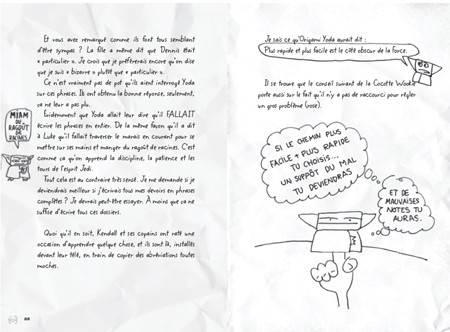 Et vous avez remarqué comme ils font tous semblant
d'être sympas ? La fille a même dit que Dennis était
« particulier ». Je crois que je préférerais encore qu'on dise
que je suis « bizarre » plutôt que « particulier ».
Ce n'est vraiment pas de pot qu'ils aient interrogé Yoda
sur ces phrases. Ils ont obtenu la bonne réponse, seulement,
ça ne leur a pas plu.
Évidemment que Yoda allait leur dire qu'il FALLAIT
écrire les phrases en entier. De la même façon qu'il a dit
à Luke qu'il fallait traverser le marais en courant pour se
mettre sur ses mains et manger du ragoût de racines. C'est
comme ça qu'on apprend la discipline, la patience et les
tours de l'esprit Jedi.
Tout cela est au contraire très sensé. Je me demande si je
deviendrais meilleur si j'écrivais tous mes devoirs en phrases
complètes ? Je devrais peut-être essayer. À moins que ça ne
suffise d'écrire tous ces dossiers.
Quoi qu'il en soit, Kendall et ses copains ont raté une
occasion d'apprendre quelque chose, et ils sont là, installés
devant leur télé, en train de copier des abréviations toutes
moches.
MIAM
DU
RAGOÛT
DE
RACINES
88
Je sais ce qu'Origami Yoda aurait dit :
Plus rapide et plus facile est le côté obscur de la force.
Il se trouve que le conseil suivant de la Cocotte Wookie
porte aussi sur le fait qu'il n'y a pas de raccourci pour régler
un gros problème (rose).
SI LE CHEMIN PLUS
FACILE + PLUS RAPIDE
TU CHOISIS...
UN SUPPÔT DU MAL
TU DEVIENDRAS
ET DE
MAUVAISES
NOTES TU
AURAS.